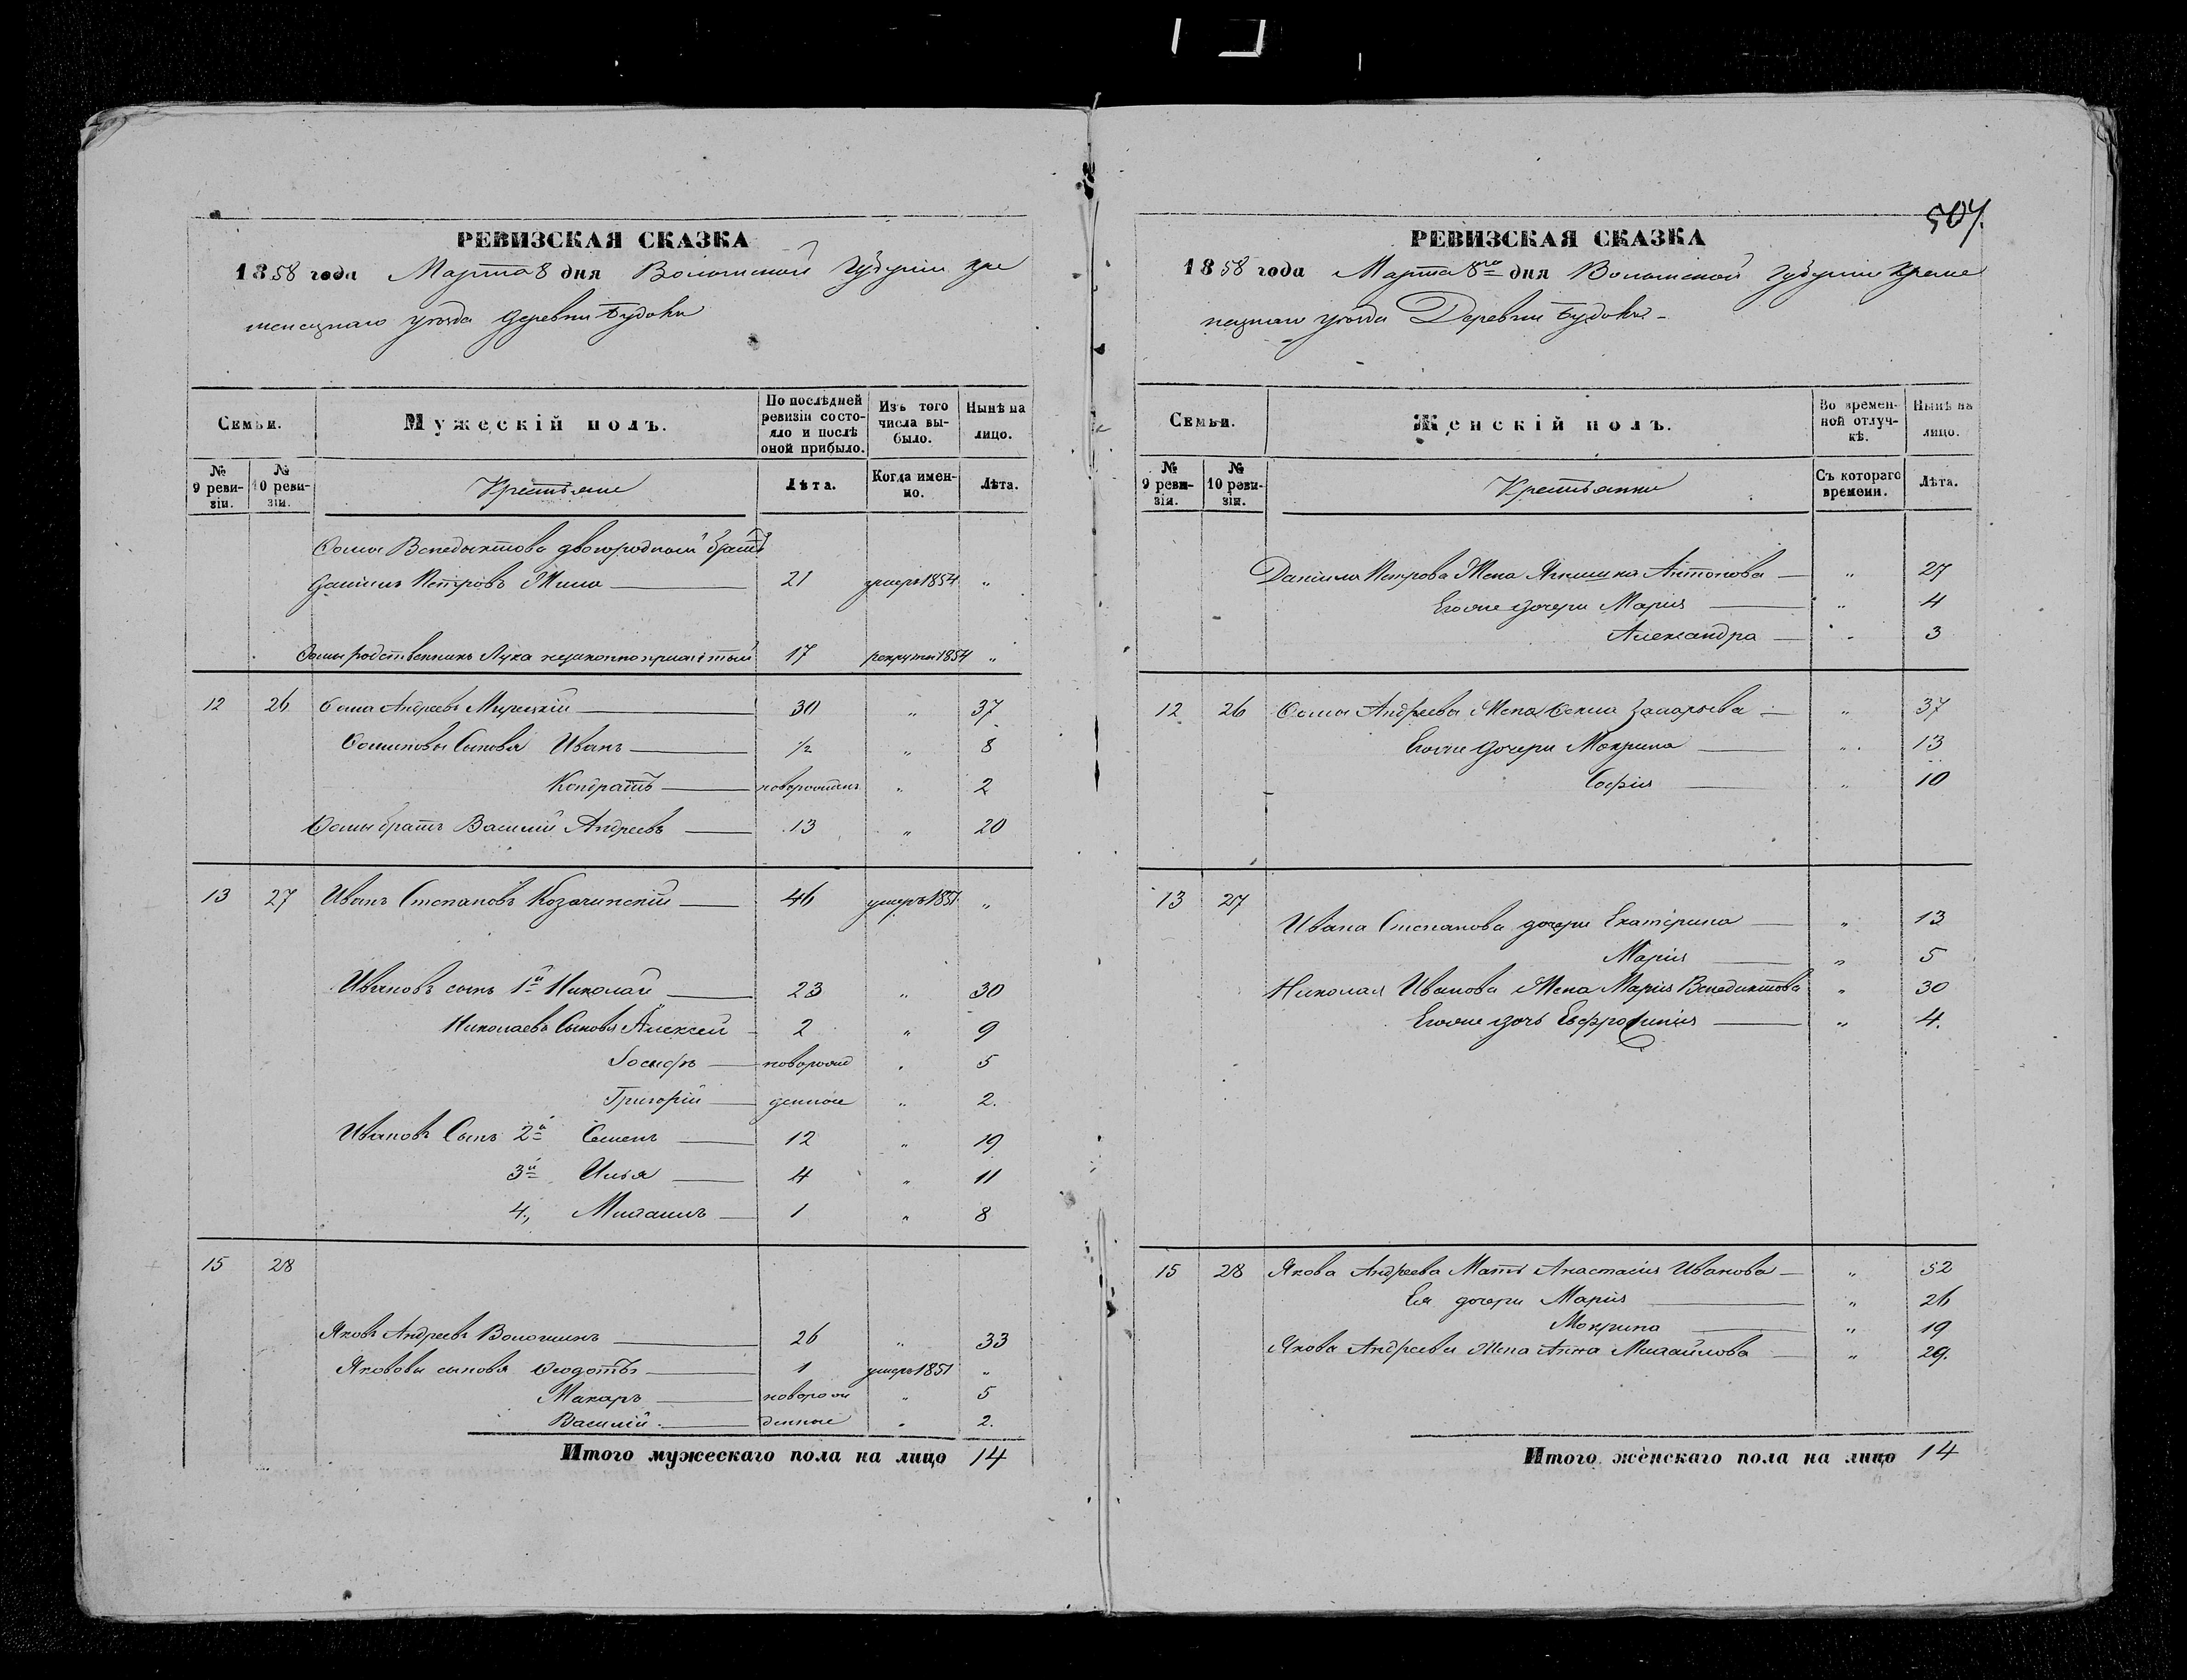 507.
РЕВИЗСКАЯ СКАЗКА
1858 года Марта 8 дня Волынской Губерніи Кре
менецкаго уѣзда Деревни Будокъ
Семьи. Мужескій полъ. По послѣдней ревизіи состояло и послѣ оной прибыло. Изъ того числа выбыло. Нынѣ на лицо.
№ 9 ревизіи. № 10 ревизіи. Крестьяне Лѣта. Когда именно. Лѣта.
Фомы Венедыктова двоюродный братъ
Даніилъ Петровъ 21 умеръ 1854 "
Фомы родственникъ Лука незаконноприжитый 17 рекрутъ 1854 "
12 26 Фома Андреевъ 30 " 37
Фомины Сыновья Иванъ ½ " 8
Кондратъ новорожден " 2
Фомы братъ Василій Андреевъ 13 " 20
13 27 Иванъ Степановъ Козачинскій 46 умеръ 1851 "
Ивановъ сынъ 1й Николай 23 " 30
Николаевы Сыновья Алексей 2 " 9
Іосифъ новорож " 5
Григорій денные " 2.
Ивановъ Сынъ 2й Семенъ 12 " 19
3й Илья 4 " 11
4., Михаилъ 1 " 8
15 28
Яковъ Андреевъ Волошинъ 26 " 33
Якововы сыновья Феодотъ 1 умеръ 1851 "
Макаръ новорож " 5
Василій денные " 2.
Итого мужескаго пола на лицо 14
РЕВИЗСКАЯ СКАЗКА
1858 года Марта 8го дня Волынской Губерніи Креме
нецкаго уѣзда Деревни Будокъ
Семьи. Женскій полъ. Во временной отлучкѣ. Нынѣ на лицо.
№ 9 ревизіи. № 10 ревизіи. Крестьянки Съ котораго времени. Лѣта.
Даніила Петрова Жена Антонова " 27
Егоже дочери Марія " 4
Александра " 3
12 26 Фомы Андреева Жена Захарьева " 37
Егоже дочери Мокрина " 13
Софія " 10
13 27
Ивана Степанова дочери Екатерина " 13
Марія " 5
Николая Иванова Жена Марія Венедиктова " 30
Егоже дочь Евфросинія " 4.
15 28 Якова Андреева Мать Анастасія Иванова " 52
Ея дочери Марія " 26
Мокрина " 19
Якова Андреева Жена Анна Михайлова " 29.
Итого женскаго пола на лицо 14